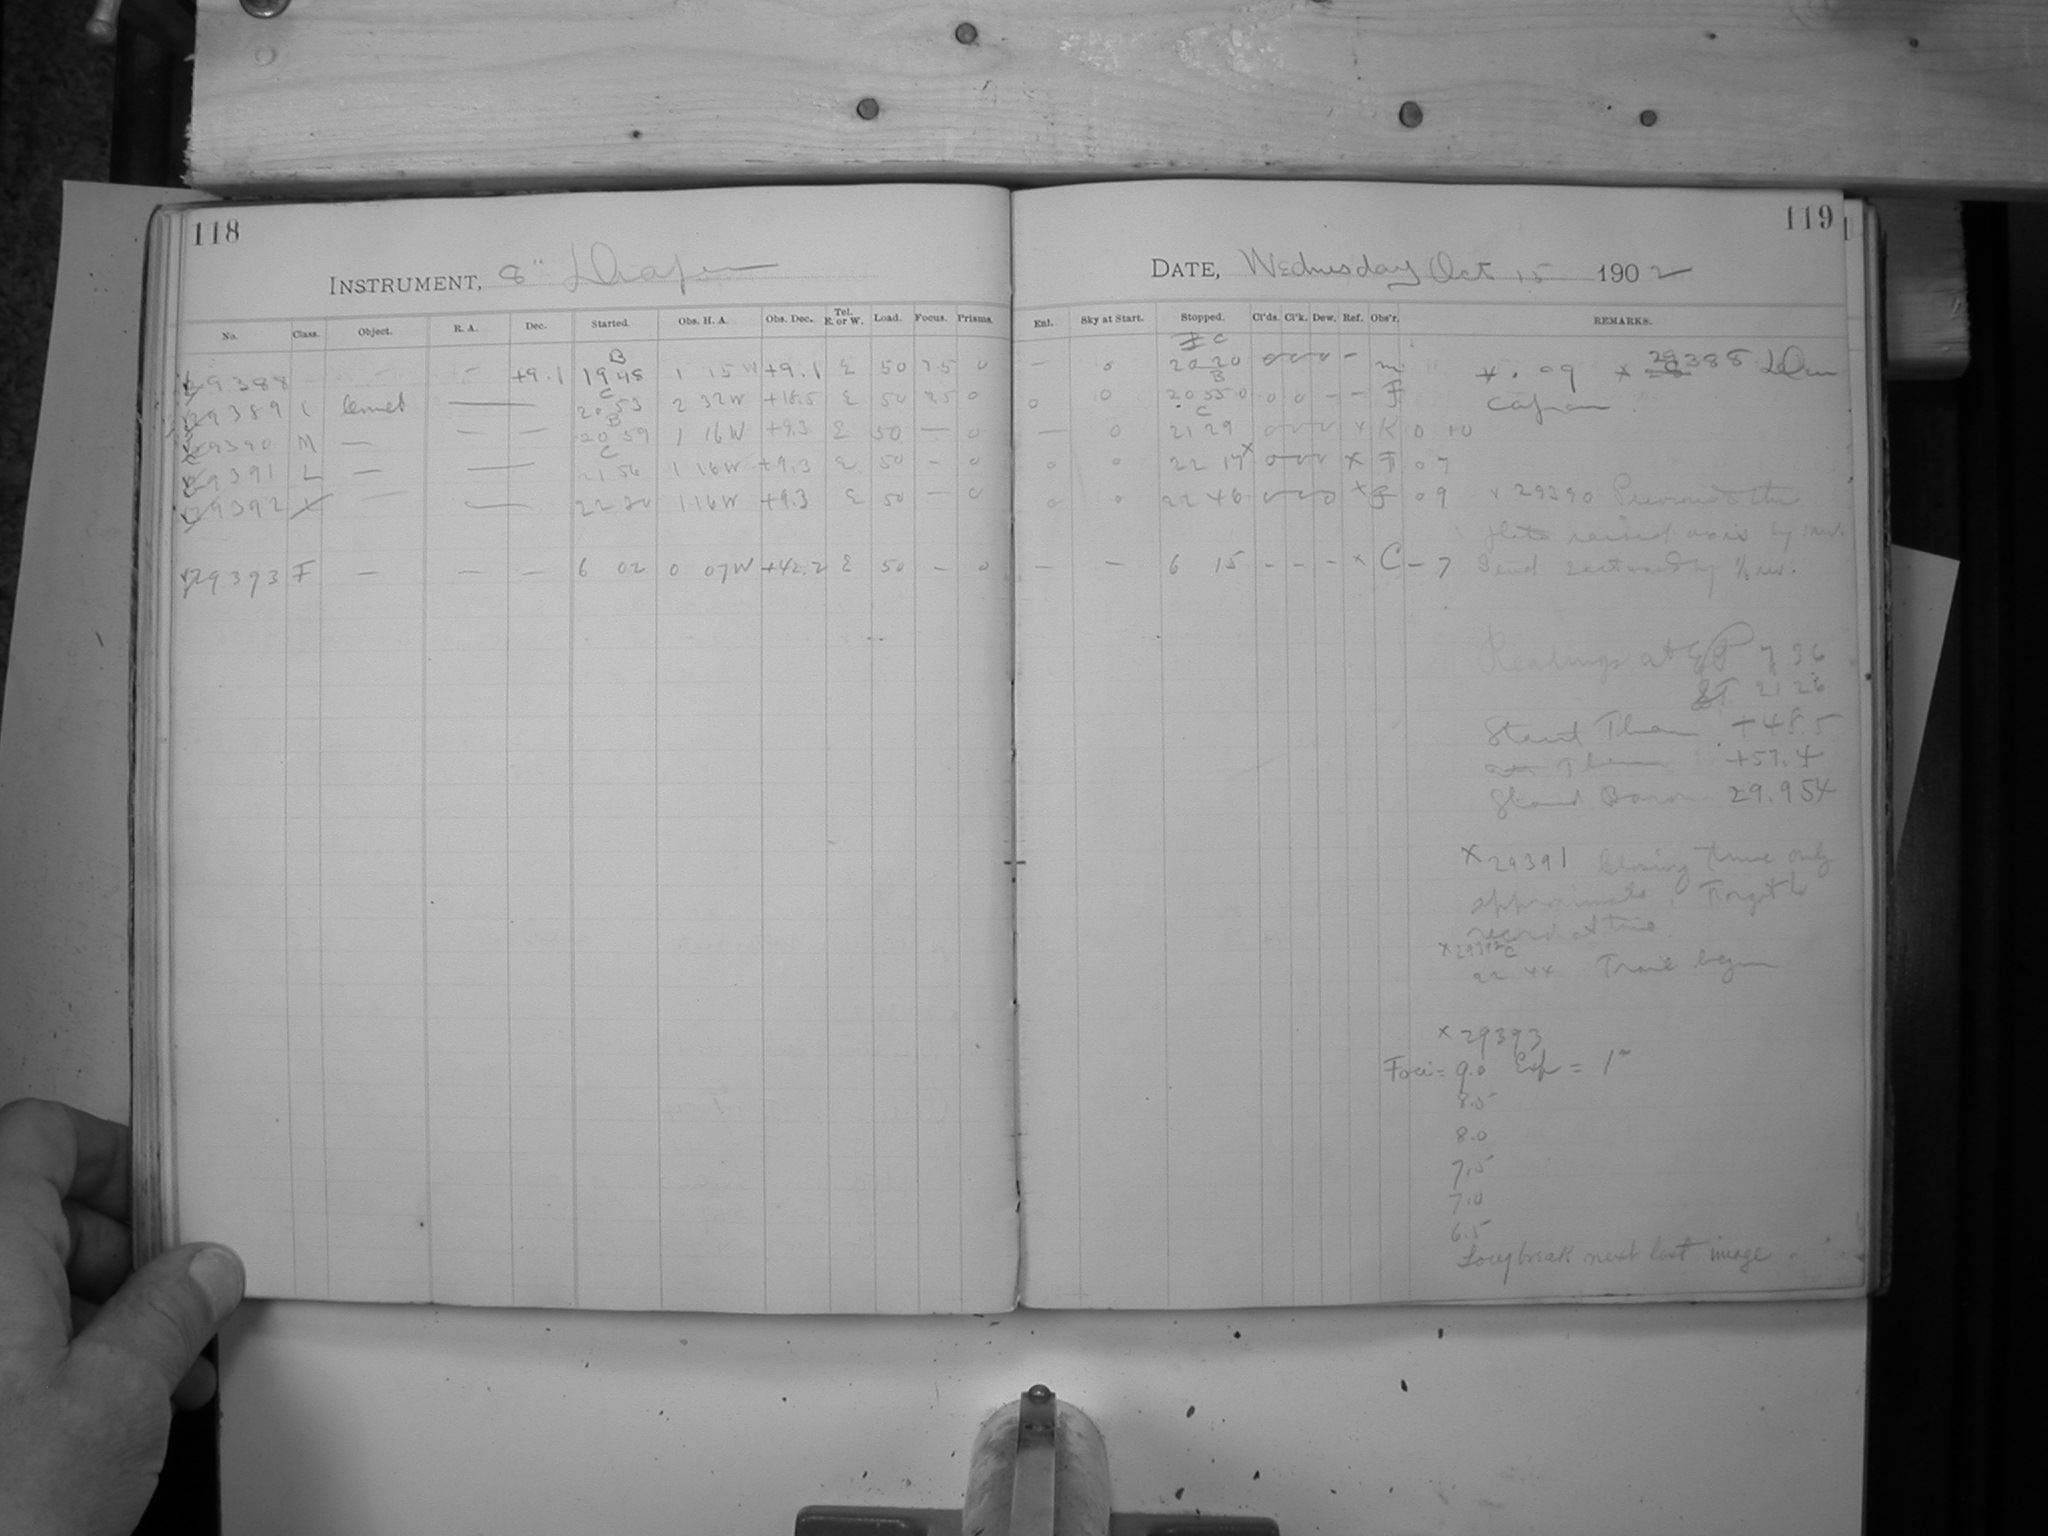 118
INSTRUMENT, 8" Draper
No. Class. Object. R. A. Dec. Started. Obs. H. A. Obs. Dec. Tel. E. or W. Load. Focus. Prisms.
B
29388 — — — +9.1 19 48 1 15 W +9.1 E 50 7.5 0
C
29389 L Comet — 20 53 2 32 W +18.5 E 50 7.5 0
B
29390 M — — — 20 59 1 16 W +9.3 E 50 — 0
C
29391 L — — 21 56 1 16 W +9.3 E 50 — 0
29392 L — — 22 20 1 16 W +9.3 E 50 — 0
29393 F — — — 6 02 0 07 W +42.2 E 50 — 0
119
DATE, Wednesday Oct 15 1902
Enl. Sky at Start. Stopped. Cl'ds. Cl'k. Dew. Ref. Obs'r. REMARKS.
C
— 0 20 20 0 0 0 — m x . 09 x 29388
B
0 0 20 55 0 0 0 — — F
C
— 0 21 29 0 0 0 x K 0 10
0 0 22 17 x 0 0 0 x F 0 7
0 0 22 46 0 0 0 x F 0 9 x 29390 Previous to this
plate raised axis by
— — 6 15 - - - x C - 7 Send eastward by ½ rev.
Readings at 7 36
ST 21 26
Stand Ther +48.5
Ther +57.4
Stand Barom 29.954
x 29391 Closing time only
approximate. Forgot to
record at time.
x 29392 C
22 44 Trail began
x 29393
Foci = 9.0 Exp = 1m
8.5
8.0
7.5
7.0
6.5
Long break next last image